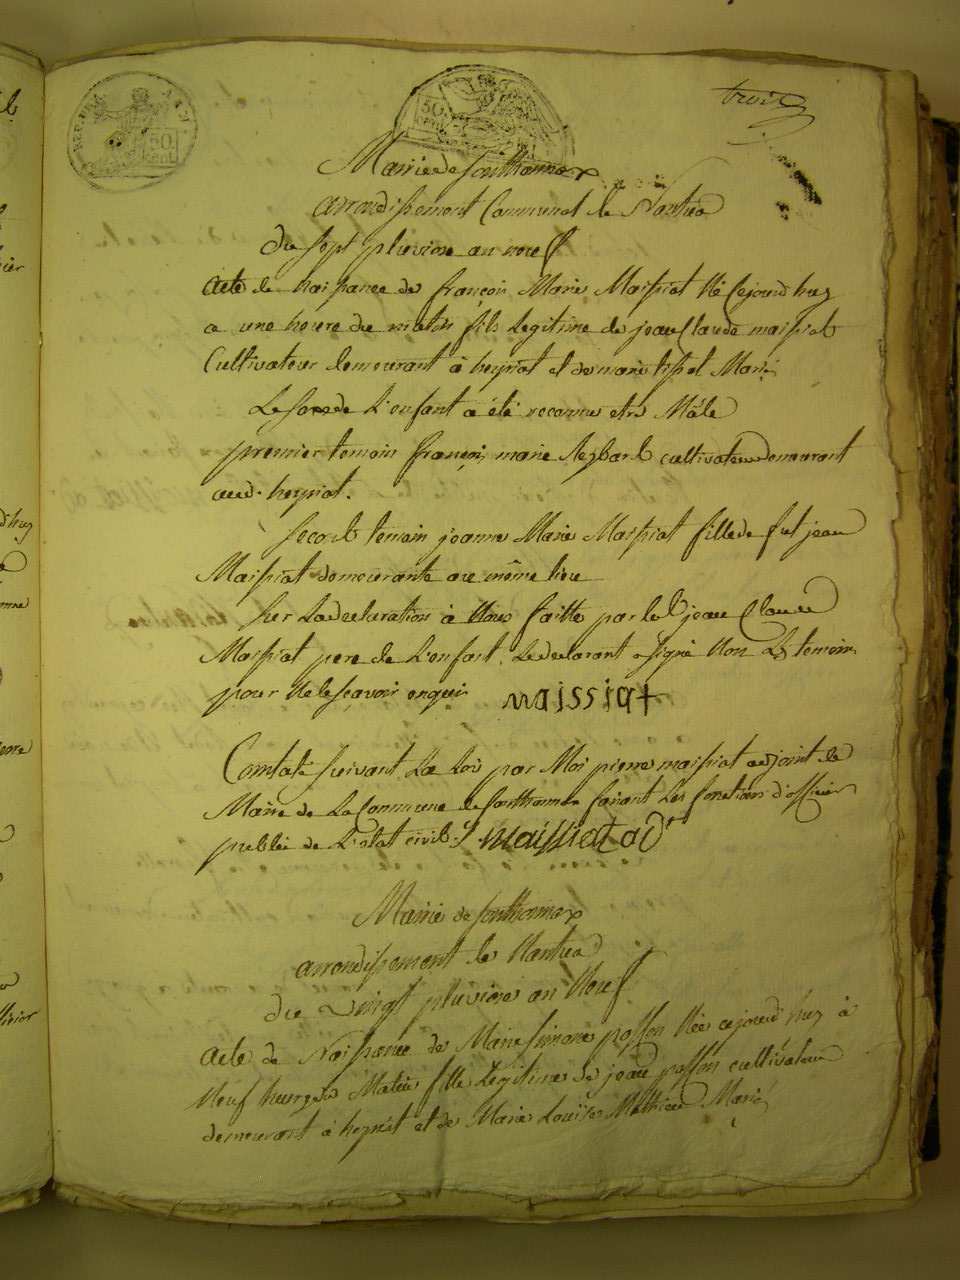 troix
REP. FRA.
50
cent.
50
cent.
Mairie de Sonthonnax
arrondissement Communal de Nantua
Du sept pluviose an neuf
acte de Naissance de françois Marie Maissiat Né Cejourd'huy
a une heure du matin fils Legitime de jean Claude maissiat
Cultivateur demeurant à heyriat et de marie tissot Mariés
Le sexe de L'enfant a été reconnu etre Mâle
premier temoin françois marie cultivateur demeurant
aud. heyriat.
second temoin jeanne Marie Maissiat fille de fut jean
Maissiat demeurante au même lieu
sur La declaration à Nous faitte par led jean Claude
Maissiat pere de L'enfant Le declarant a signé Non Les temoins
pour Ne le sçavoir enquis maissiat
Constaté suivant La Loi par Moi pierre maissiat adjoint de
Maire de La Commune de Sonthonnax faisant Les fonctions d'officier
public de L'etat civil. maissiat adt
Mairie de Sonthonnax
arrondissement de Nantua
du vingt pluviose an Neuf
acte de Naissance de Marie simone passon Née cejourd'huy à
Neuf heures du Matin fille Legitime de jean passon cultivateur
demeurant à heyriat et de Marie Louise Mathieu Mariés